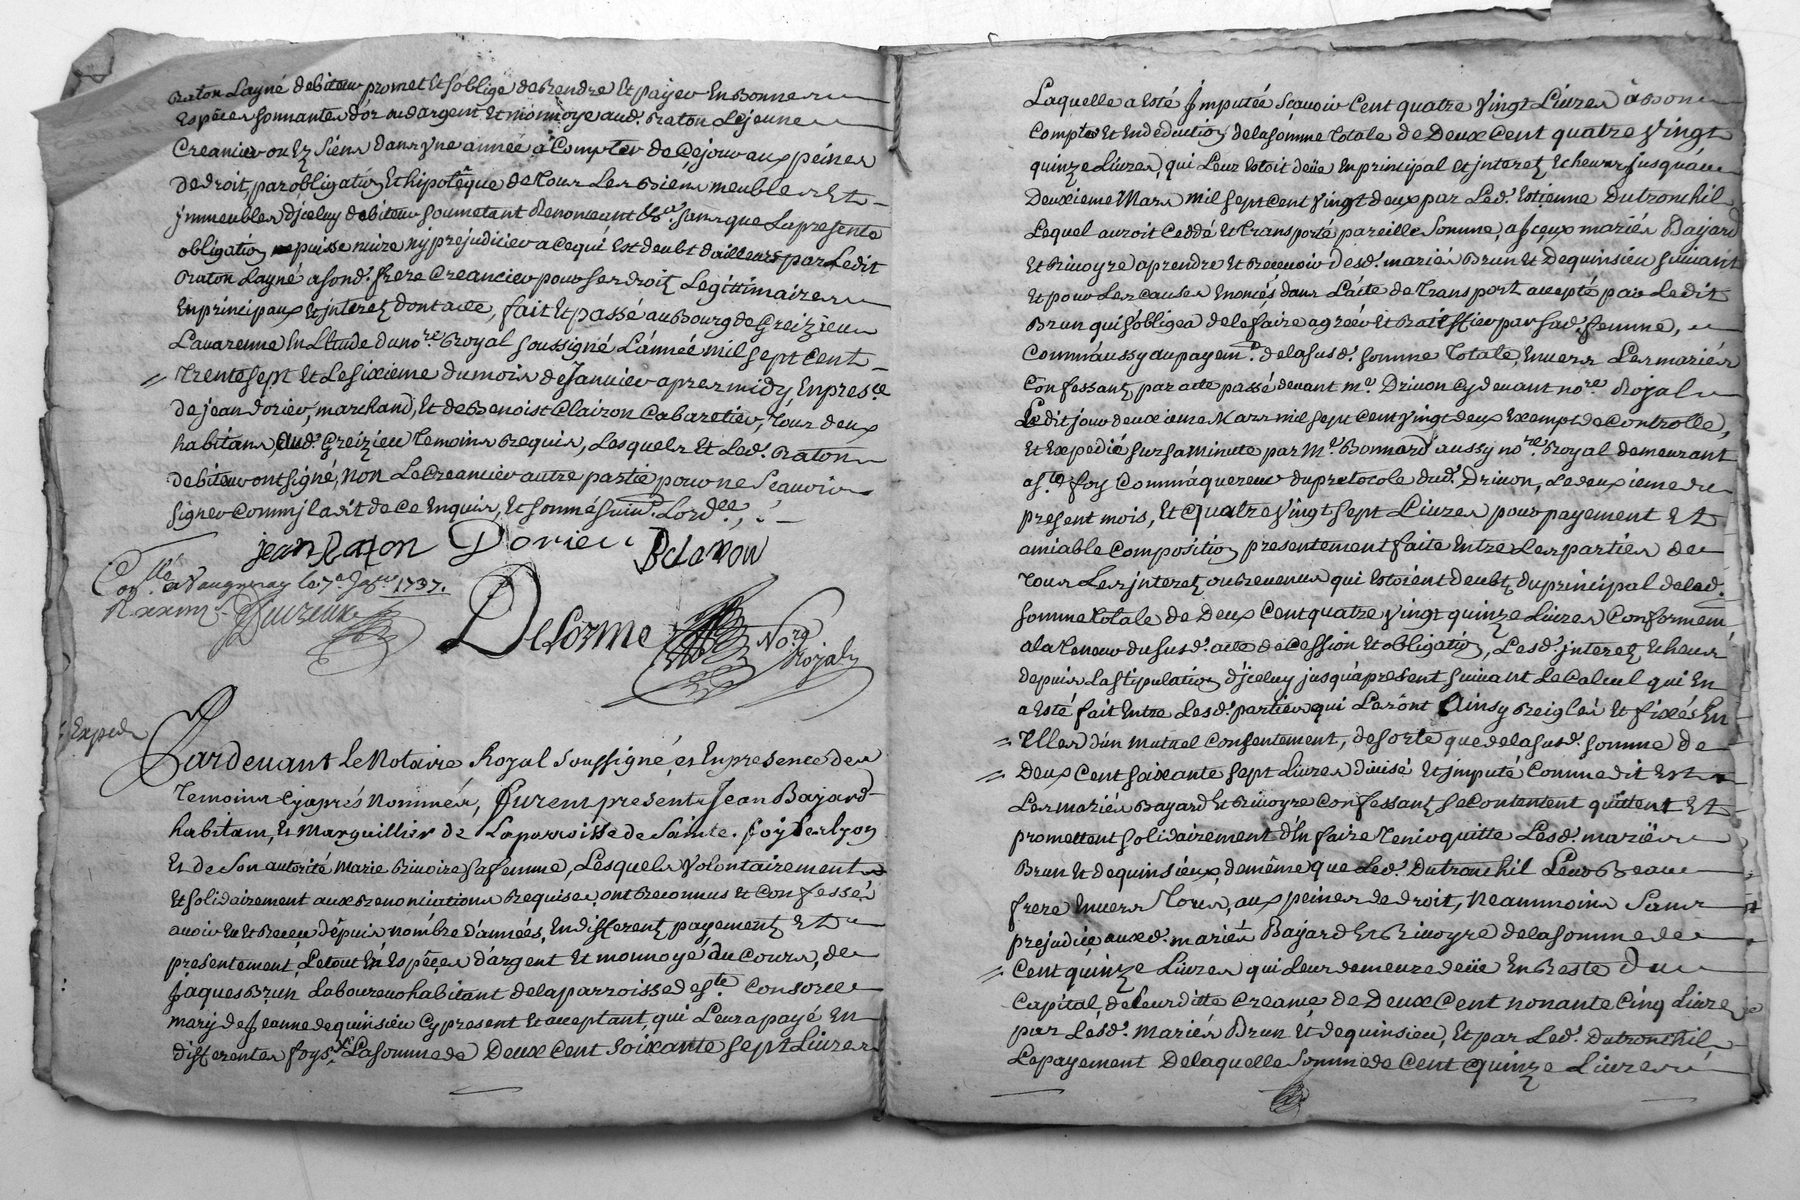 Raton Layné debiteur promet Et s'oblige de Rendre Et payer En Bonne
Espéces sonnantes d'or ou d'argent Et monnoye aud. Raton Lejeune
Creancier ou Ez Siens dans yne année à Compter de Cejour aux peines
de droit, par obligatio͂ Et hipotéque de tous Les Biens meubles Et
jmmeubles d'jceluy debiteur soumetant Renonceant &ca. sans que La presente
obligatio͂ puisse nuire ny prejudicier a Ce qui Est deubt d'ailleurs par Ledit
Raton Layné a son d. frere Creancier pour ses droitz Legittimaires
En principaux Et jnteretz dont acte, fait Et passé au Bourg de Greizieu
Lauarenne En L'Etude du nore. Royal soussigné L'année mil sept Cent
trente sept Et Le sixieme du mois de Januier apres midy, En presce.
de jean dorier, marchand, Et de Benoist Clairon Cabaretier, tous deux
habitans, dud. Greizieu temoins Requis, Lesquels Et Led. Raton
debiteur ont signé, non Le Creancier autre partie pour ne Scauoir
signer Comm'jl a dit de Ce Enquis, Et sommé suiu. Lordce.,
jean Raton Dorieu B Clairon
Conllé. a Vaugneray le 7e Janr. 1737.
Delorme Nore. Royal
Exped.
Pardeuant Le Notaire Royal soussigné, Et En presence des
temoins Cy aprés Nommés, furent presents Jean Bayard
habitant, Et Marguillier de La parroisse de Sainte. foy Les lyon
Et de Son autorité Marie Riuoire sa femme, Lesquels Volontairement
Et solidairement aux Renonciations Requises, ont Reconnus Et Confessé
auoir Eu Et Receu depuis nombre d'années, En differentz payementz Et
presentement, Le tout En Espéces d'argent Et monnoyé du Cours, de
Jaques Brun Laboureur habitant de la parroisse de ste. Consorce
mary de Jeanne dequinsieu Cy present Et acceptant, qui Leur a payé En
differentes foys, La somme de Deux Cent Soixante sept Liures
Laquelle a Esté Jmputée Scauoir Cent quatre Vingt Liures à Bon
Compte Et En déduction de la somme totale de Deux Cent quatre Vingt
quinze Liures, qui Leur Estoit deüe En principal Et jnteretz Echeus jusqu'au
Deuxieme Mars mil sept Cent Vingt deux par Led. Estienne Dutronchil
Lequel auroit Ceddé Et transporté pareille Somme, a jceux mariés Bayard
Et Riuoyre a prendre Et Receuoir desd. mariés Brun Et Dequinsieu suiuant
Et pour Les Causes Enoncés dans L'acte de transport accepté par Ledit
Brun qui s'obligea de le faire agréer Et Ratiffier par sad. femme,
Comm'aussy au payemt. de la susd. somme totale, Enuers Les mariés
Confessantz par acte passé deuant me. Driuon Cy deuant nore. Royal
Ledit jour deuxieme Mars mil sept Cent Vingt deux Exempt de Controlle,
Et Expedié sur sa minute par Me. Bonnard aussy nore. Royal demeurant
a ste. foy Comm'aquereur du protocole dud. Driuon, Le deuxieme du
present mois, Et quatre Vingt sept Liures pour payement Et
amiable Compositio͂ presentement faite Entre Les parties de
tous Les jnteretz ou Reuenus qui Estoient deubtz du principal de lad.
somme totale de Deux Cent quatre Vingt quinze Liures Conformemt.
a la teneur du susd. acte de Cession Et obligatio͂, Lesd. jnteretz Echeus
depuis La stipulatio͂ d'jceluy jusqu'a present suiuant Le Calcul qui En
a Esté fait Entre Lesd. parties qui Les ont Ainsy Reiglés Et fixés En
tr'Elles d'un Mutuel Consentement, de sorte que de la susd. somme de
Deux Cent soixante sept Liures diuisé Et jmputé Comme dit Est
Les mariés Bayard Et Riuoyre Confessantz se Contentent quittent Et
promettent solidairement d'En faire tenir quitte Lesd. mariés
Brun Et dequinsieux, de même que Led. Dutronchil Leur Beau
frere Enuers tous, aux peines de droit, Neammoins Sans
prejudice auxd. mariés Bayard Et Riuoyre de la somme de
Cent quinze Liures qui Leur demeure deüe En Reste du
Capital, de Leur ditte Creance de Deux Cent nonante Cinq Liures
par Lesd. Mariés Brun Et dequinsieu, Et par Led. Dutronchil
Le payement De laquelle Somme de Cent quinze Liures